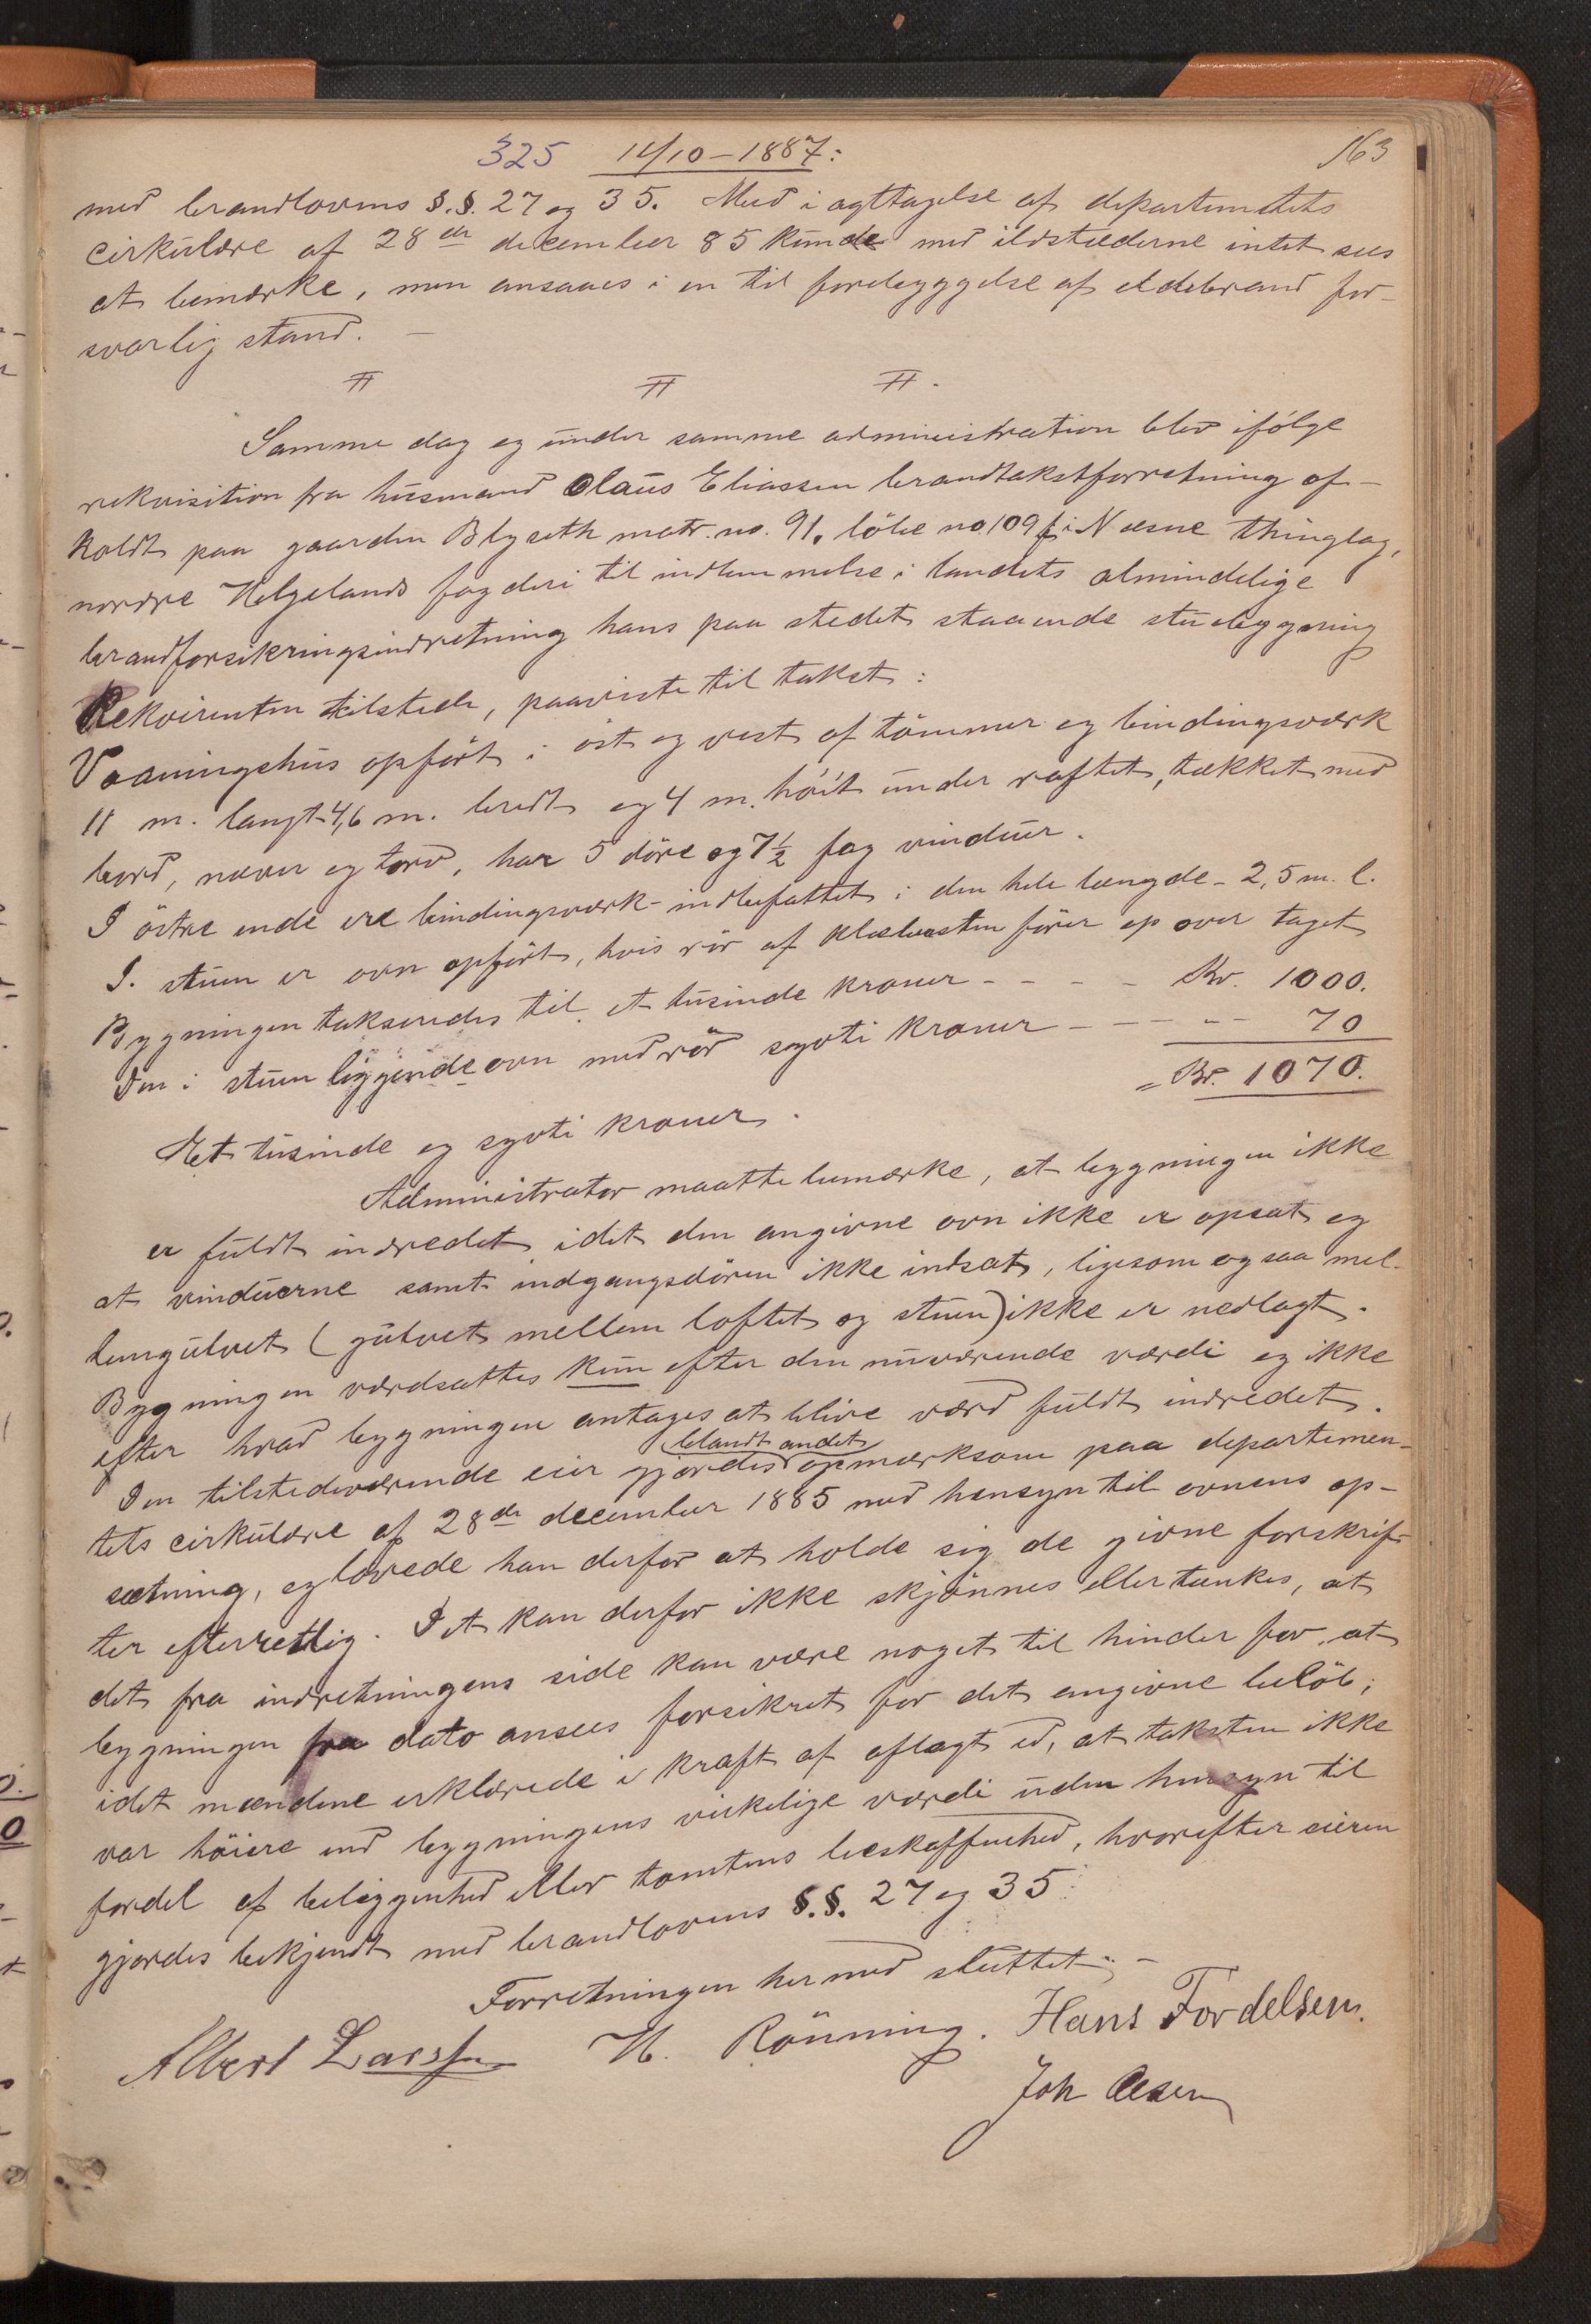 325 14/10-1887: 163
med brandlovens §.§. 27 og 35. Med iagttagelse af departemetets
cirkulære af 28de december 85 kunde med ildstæderne intet sees
at bemærke, men ansaaes i en til forebyggelse af ildebrand for-
svarlig stand. –
# # #.
Samme dag og under samme administration blev ifölge
rekvisition fra husmand Olaus Eliassen brandtakstforretning af-
holdt paa gaarden Blyseth matr. no. 91. löbe no 109 f i Næsne thinglag,
nordre Helgelands fogderi til indlemmelse i landets almindelige
brandforsikringsindretning hans paa stedet staaende stuebygning
Rekvirenten tilstede, paaviste til takst:
Vaaningshus opfört i öst og vest af tömmer og bindingsværk
11 m. langt 4,6 m. bredt og 4 m. höit under raftet, tækket med
bord, næver og torv, har 5 döre og 7½ fag vinduer.
I östre ende ere bindingsværk indbefattet i den hele længde – 2,5 m. l.
I. stuen er ovn opfört, hvis rör af klæbersten förer op over taget
Bygningen takseredes til et tusinde kroner - - - - Kr. 1000.
Den i stuen liggende ovn med rör sytti kroner - - - - 70
= Kr. 1070.
Et tusinde og sytti kroner.
Administrator maatte bemærke, at bygningen ikke
er fuldt indredet idet den angivne ovn ikke er opsat og
at vinduerne samt indgangsdören ikke indsat, ligesom ogsaa mel-
lemgulvet (gulvet mellem loftet og stuen) ikke er nedlagt.
Bygningen værdsattes kun efter den nuværende værdi og ikke
efter hvad bygningen antages at blive værd fuldt indredet.
blandt andet
Den tilstedeværende eier gjordes opmærksom paa departemen-
tets cirkulære af 28de december 1885 med hensyn til ovnens op-
sætning, og lovede han derfor at holde sig de givne forskrif-
ter efterrettlig. Det kan derfor ikke skjönnes eller tænkes, at
det fra indretningens side kan være noget til hinder for, at
bygningen fra dato ansees forsikret for det angivne belöb;
idet mændene erklærede i kraft af aflagt ed, at taksten ikke
var höiere end bygningens virkelige værdi uden hensyn til
fordel af beliggenhed eller tomtens beskaffenhed, hvorefter eieren
gjordes bekjendt med brandlovens §.§. 27 og 35
Forretningen hermed sluttet. –
Albert Larssen H. Rönning. Hans Fordelsen.
Joh Olsen